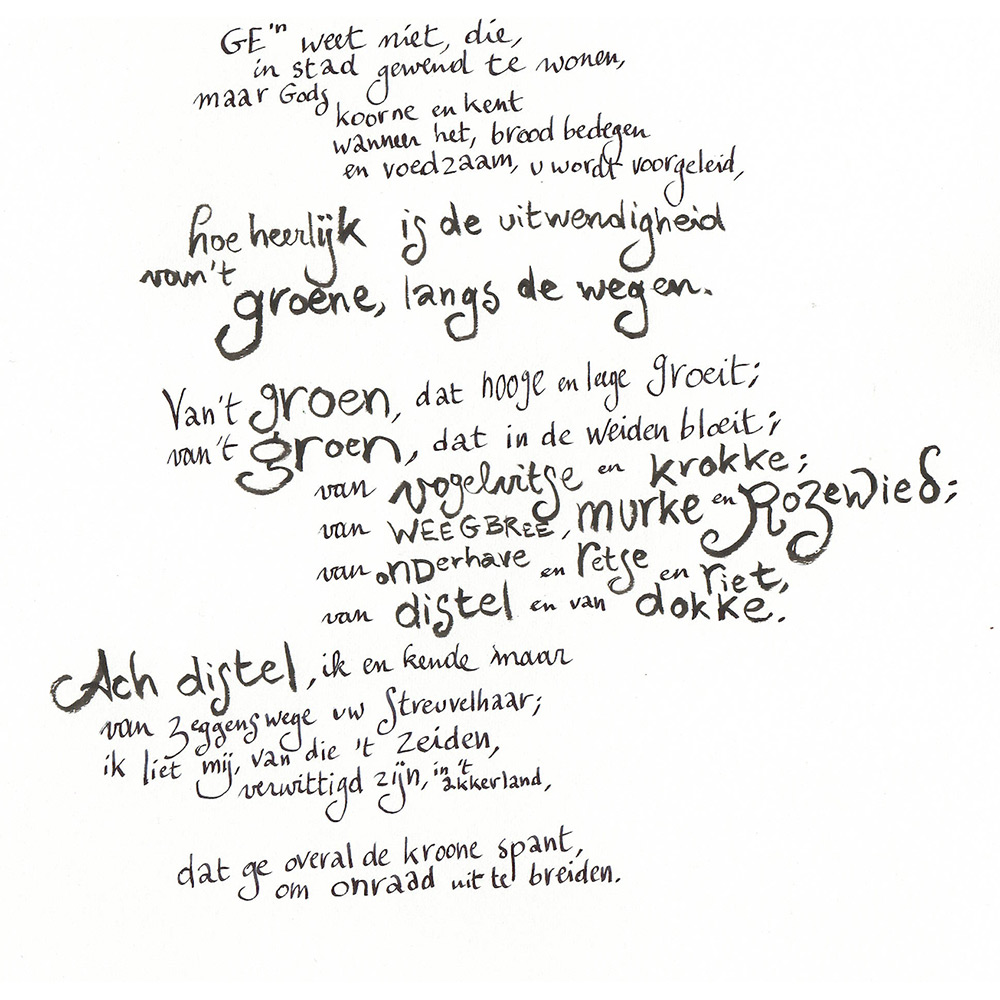 GE'n weet niet, die,
in stad gewend te wonen,
maar Gods
koorne en kent
wanneer het, brood bedegen
en voedzaam, u wordt voorgeleid,
hoe heerlijk is de uitwendigheid
van't
groene, langs de wegen.
Van't groen, dat hooge en leege groeit;
van't groen, dat in de weiden bloeit;
van vogelvitse en krokke;
van WEEGBREE, murke en Rozewied;
van onderhave en retse en riet,
van distel en van dokke.
Ach distel, ik en kende maar
van zeggenswege uw Streuvelhaar;
ik liet mij, van die 't zeiden,
verwittigd zijn, in 't
akkerland,
dat ge overal de kroone spant,
om onraad uit te breiden.